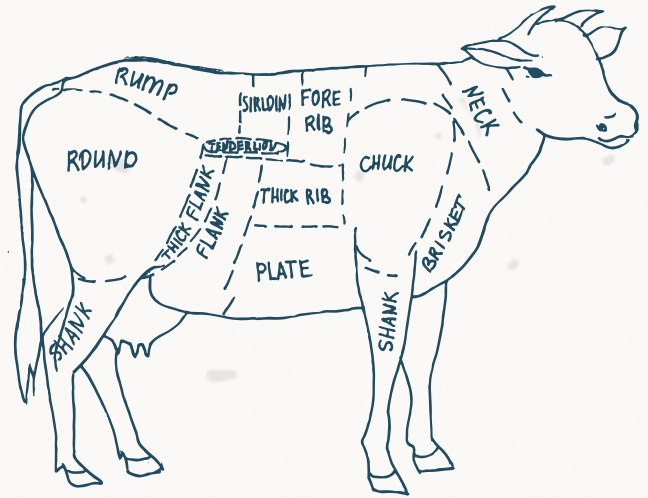 RUMP
SIRLOIN
FORE
RIB
NECK
TENDERLION
ROUND
CHUCK
THICK FLANK
FLANK
THICK RIB
BRISKET
PLATE
SHANK
SHANK